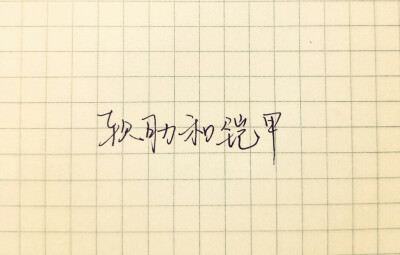 软肋和铠甲